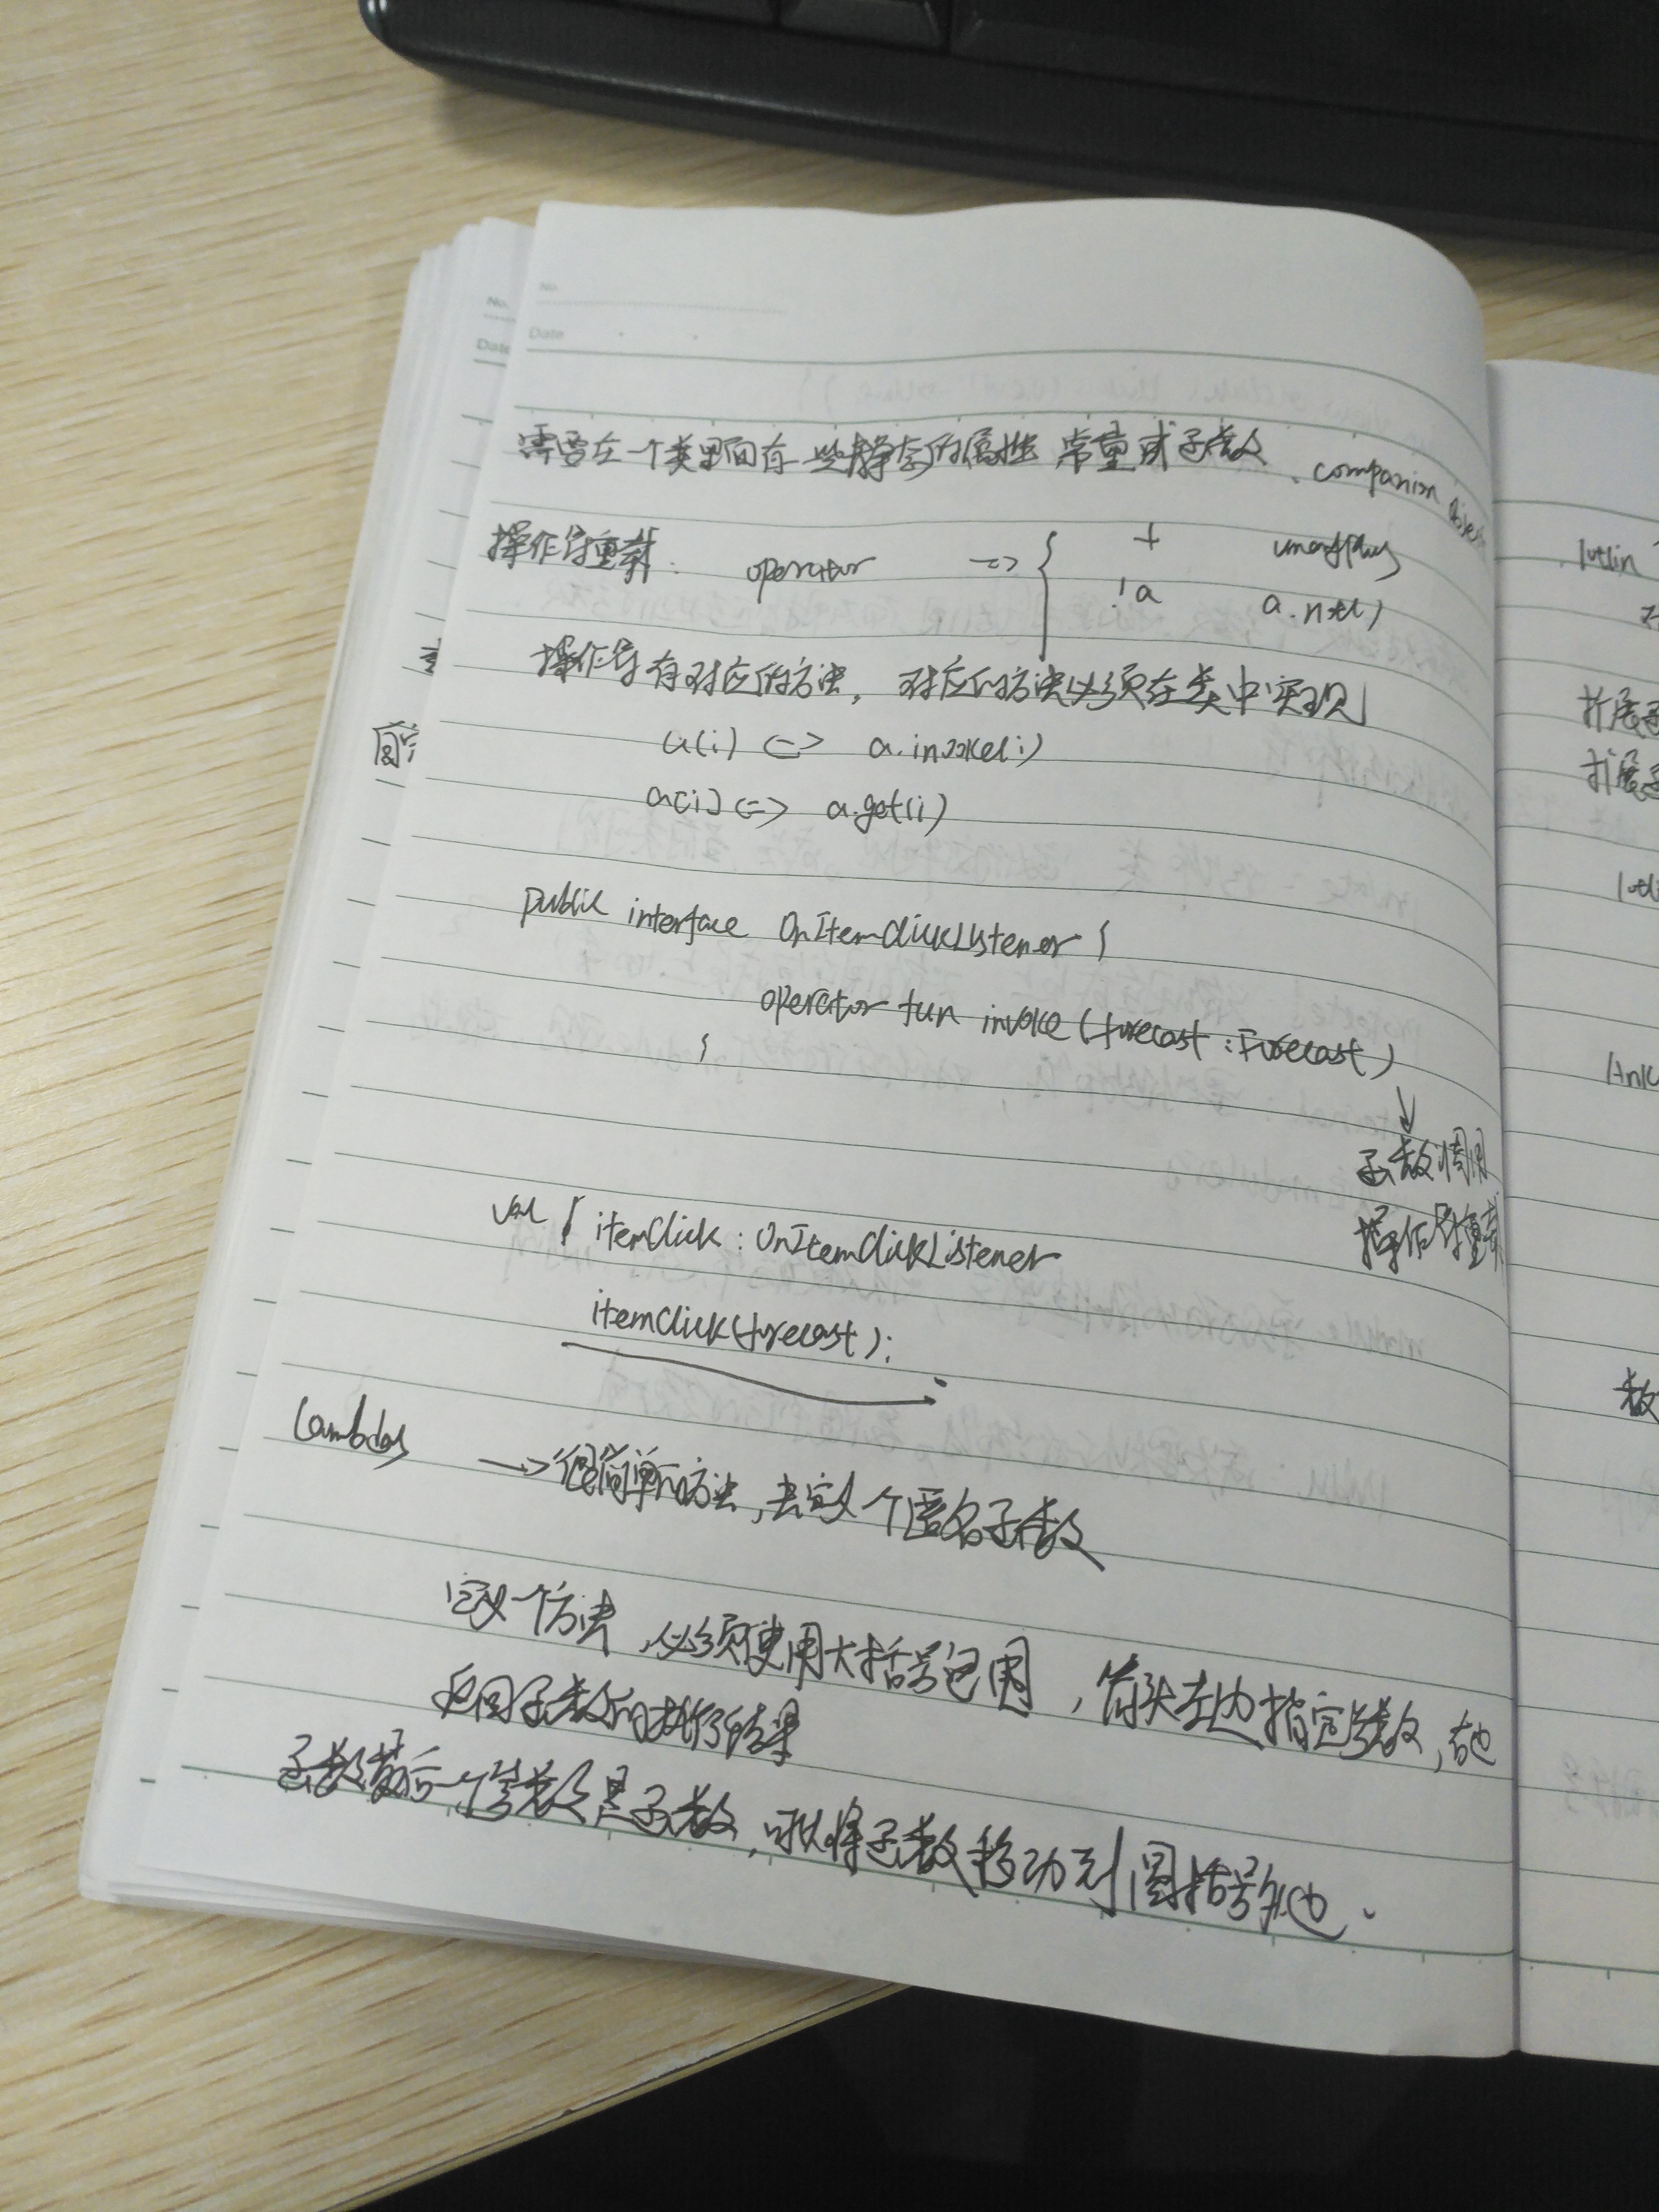 No.
Date
需要在一个类里面有一些静态的属性 常量或函数、companion object
操作符重载: operator => { + unaryplus
!a a.not()
操作符有对应的方法,对应的方法必须在类中实现
a(i) <=> a.invoke(i)
a[i] <=> a.get(i)
public interface OnItemClickListener {
operator fun invoke (forecast : Forecast)
}
↓
函数调用
操作符重载
val itemClick : OnItemClickListener
itemClick(forecast);
Lambdas → 很简单的方法,去定义个匿名函数
定义一个方法,必须使用大括号包围,箭头左边指定参数,右边
返回函数的执行结果
函数最后一个参数是函数,可以将函数移动到圆括号外边.
No.
Date
kotlin
扩展函
扩展函
数